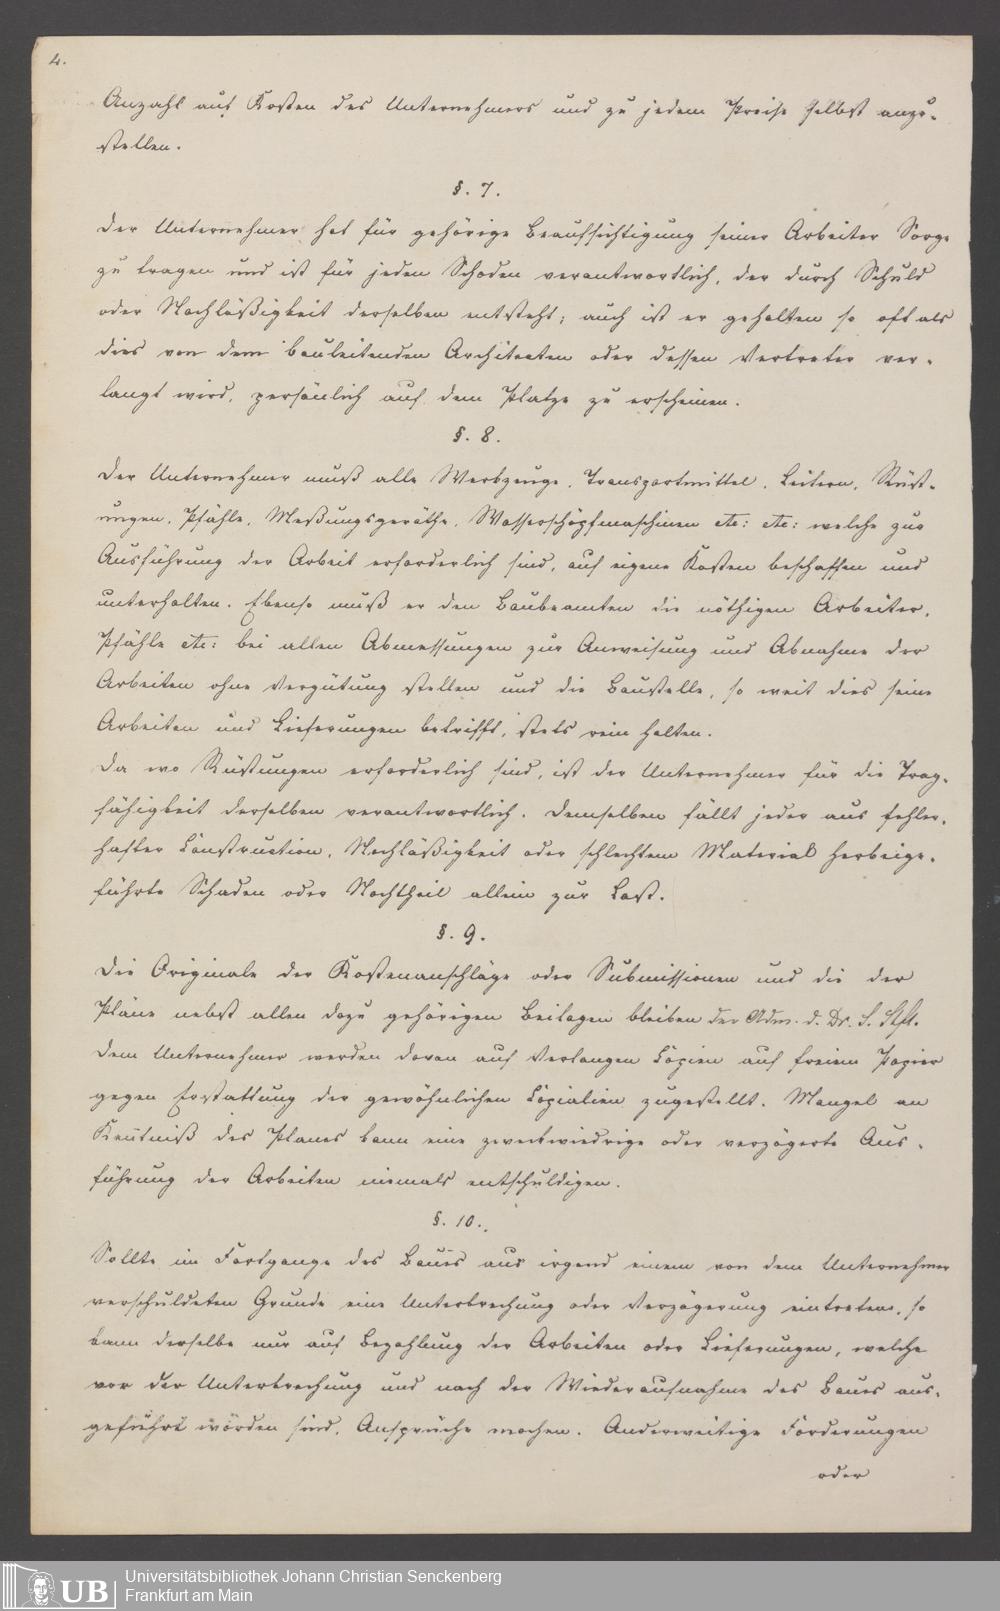 4.
Anzahl auf Kosten des Unternehmers und zu jedem Preise selbst anzu-
stellen.
§. 7.
Der Unternehmer hat für gehörige Beaufsichtigung seiner Arbeiter Sorge
zu tragen und ist für jeden Schaden verantwortlich, der durch Schuld
oder Nachläßigkeit derselben entsteht; auch ist er gehalten so oft als
dies von dem bauleitenden Architecten oder dessen Vertreter ver-
langt wird, persönlich auf dem Platze zu erscheinen.
§. 8.
Der Unternehmer muß alle Werkzeuge, Transportmittel, Leitern, Rüst-
ungen, Pfähle, Meßungsgeräthe, Wasserschöpfmaschinen etc: etc: welche zur
Ausführung der Arbeit erforderlich sind, auf eigene Kosten beschaffen und
unterhalten. Ebenso muß er den Baubeamten die nöthigen Arbeiter,
Pfähle etc: bei allen Abmessungen zur Anweisung und Abnahme der
Arbeiten ohne Vergütung stellen und die Baustelle, so weit dies seine
Arbeiten und Lieferungen betrifft, stets rein halten.
Da wo Rüstungen erforderlich sind, ist der Unternehmer für die Trag-
fähigkeit derselben verantwortlich. Demselben fällt jeder aus fehler-
hafter Construction, Nachläßigkeit oder schlechtem Material herbeige-
führte Schaden oder Nachtheil allein zur Last.
§. 9.
Die Originale der Kostenanschläge oder Submissionen und die der
Pläne nebst allen dazu gehörigen Beilagen bleiben der Adm. d. Dr. S. Stft.
Dem Unternehmer werden davon auf Verlangen Copien auf freiem Papier
gegen Erstattung der gewöhnlichen Copialien zugestellt. Mangel an
Kentniß des Planes kann eine zweckwiedrige oder verzögerte Aus-
führung der Arbeiten niemals entschuldigen.
§. 10.
Sollte im Fortgange des Baues aus irgend einem von dem Unternehmer
verschuldeten Grunde eine Unterbrechung oder Verzögerung eintreten, so
kann derselbe nur auf Bezahlung der Arbeiten oder Lieferungen, welche
vor der Unterbrechung und nach der Wiederaufnahme des Baues aus-
geführt worden sind, Ansprüche machen. Anderweitige Forderungen
oder
UB Universitätsbibliothek Johann Christian Senckenberg
Frankfurt am Main